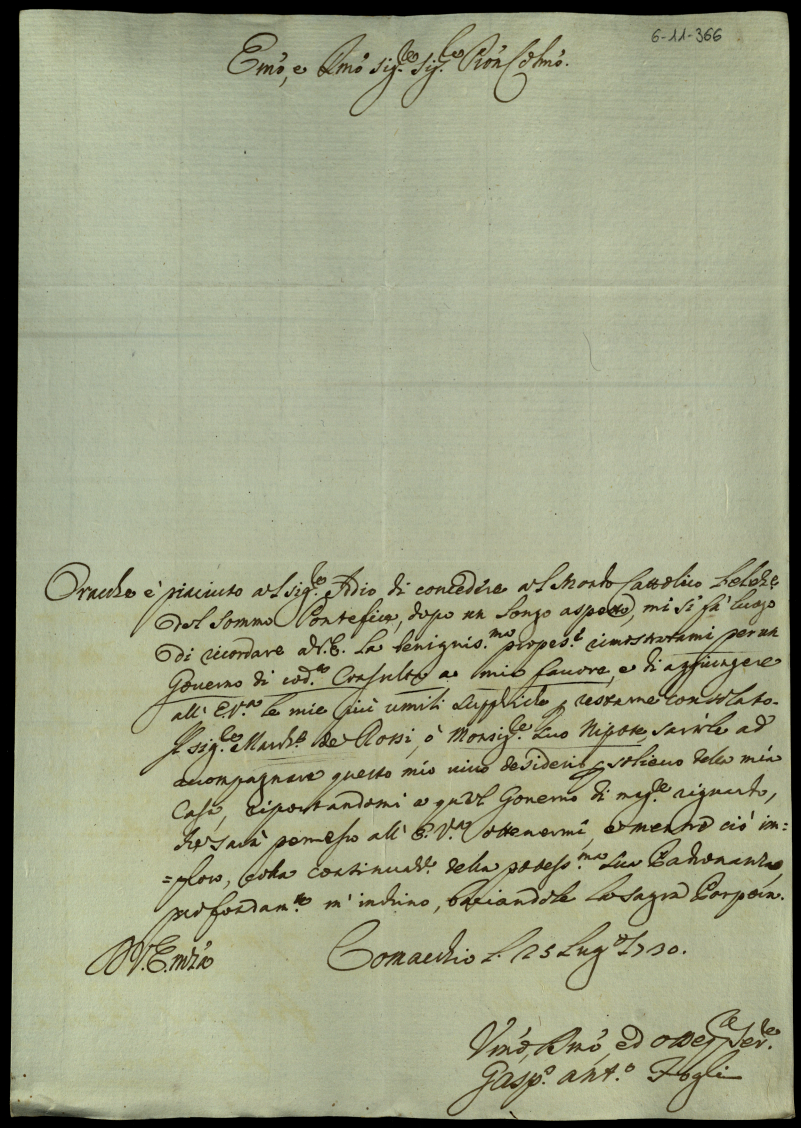 6-11-366
Emô, e Rmô sig.re sig.re Prôn Colmô.
Oracche è piaciuto al sig.re Idio di concedere al Mondo Cattolico
del sommo Pontefice, dopo un longo aspetto, mi si fà luogo
di ricordare a V.E. la benignis.ma propens.e rimostratami per un
Governo di cod.ta Consulta a mio favore, e di aggiungere
all' E.V.ra le mie più umili suppliche p restarne consolato.
Il sig.re March.e de Rossi, ò Monsig.re suo Nipote sarà le ad
accompagnare questo mio vivo desiderio p solievo della mia
Casa, riportandomi a quel Governo di mag.re riguardo,
che sarà permesso all' E.V.ra ottenermi, e mentre ciò im=
=ploro, colla continuaz.e della podeross.ma sua Padronanza
profondam.te m' inchino, baciandole la sagra Porpora.
D V. Emza
Comacchio L. 25 Lug.o 1730.
Vmô, Rmô, ed osseq. Ser.re
Gasp.o Ant.o Fogli